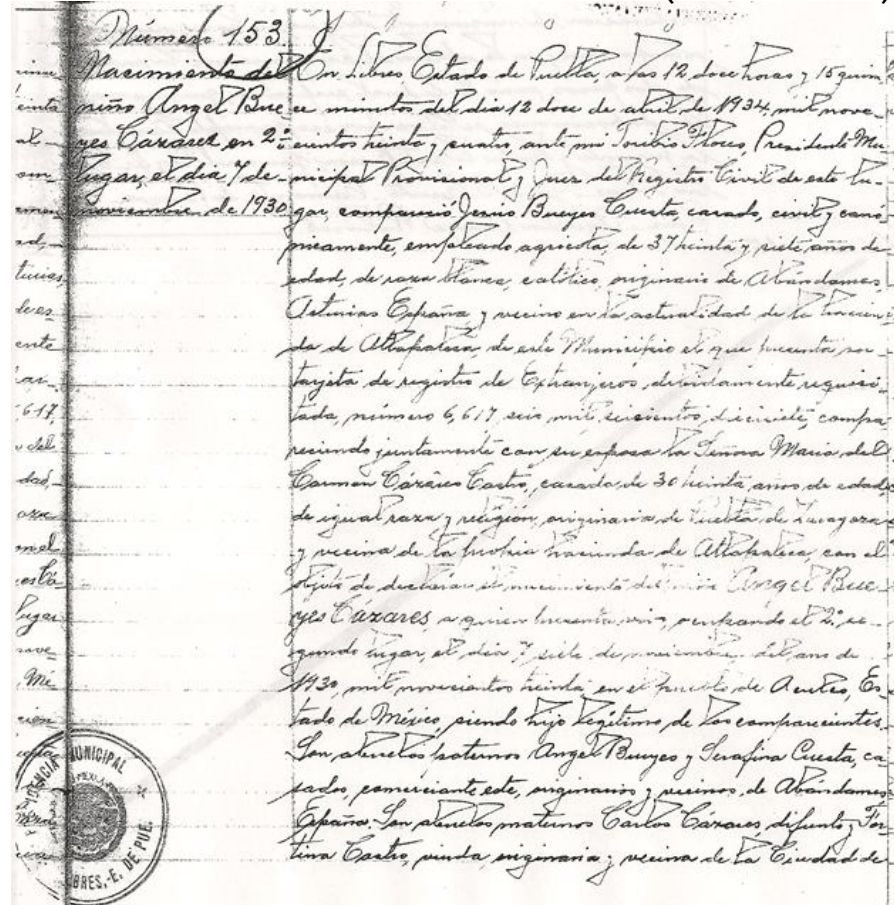 Número 153.
Nacimiento del
niño Angel Bue
yes Cázares en 2º
lugar, el dia 7 de
noviembre de 1930
En Libres, Estado de Puebla, a las 12 doce horas y 15 quin
ce minutos del dia 12 doce de abril de 1934, mil nove
cientos treinta y cuatro, ante mi Toribio Flores, Presidente Mu
nicipal Provisional y Juez del Registro Civil de este lu-
gar, compareció Jesús Bueyes Cuesta, casado, civil y canó
nicamente, empleado agrícola, de 37 treinta y siete años de
edad, de raza blanca, católico, originario de Abándames
Asturias España y vecino en la actualidad de la hacien
da de Atlapaleca, de este Municipio el que presenta su
tarjeta de registro de Extranjeros, debidamente requisi-
tada, número 6,617, seis mil seiscientos diecisiete, compa
reciendo juntamente con su esposa la Señora Maria del
Carmen Cázares Castro, casada, de 30 treinta años de edad,
de igual raza y religión, originaria de Puebla de Zaragoza
y vecina de la propia hacienda de Atlapaleca, con el
objeto de declarar el nacimiento del niño Angel Bue-
yes Cázares, a quien presenta vivo, ocupando el 2º se-
gundo lugar, el dia 7 siete de noviembre del año de
1930, mil novecientos treinta en el pueblo de Aculco, Es-
tado de México, siendo hijo legítimo de los comparecientes.
Son abuelos paternos Angel Bueyes y Serafina Cuesta, ca
sados, comerciante este, originarios y vecinos de Abándames
España. Son abuelos maternos Carlos Cázares, difunto y
tina Castro, viuda, originaria y vecina de la Ciudad de
MUNICIPAL
LIBRES.-E. DE PUE.